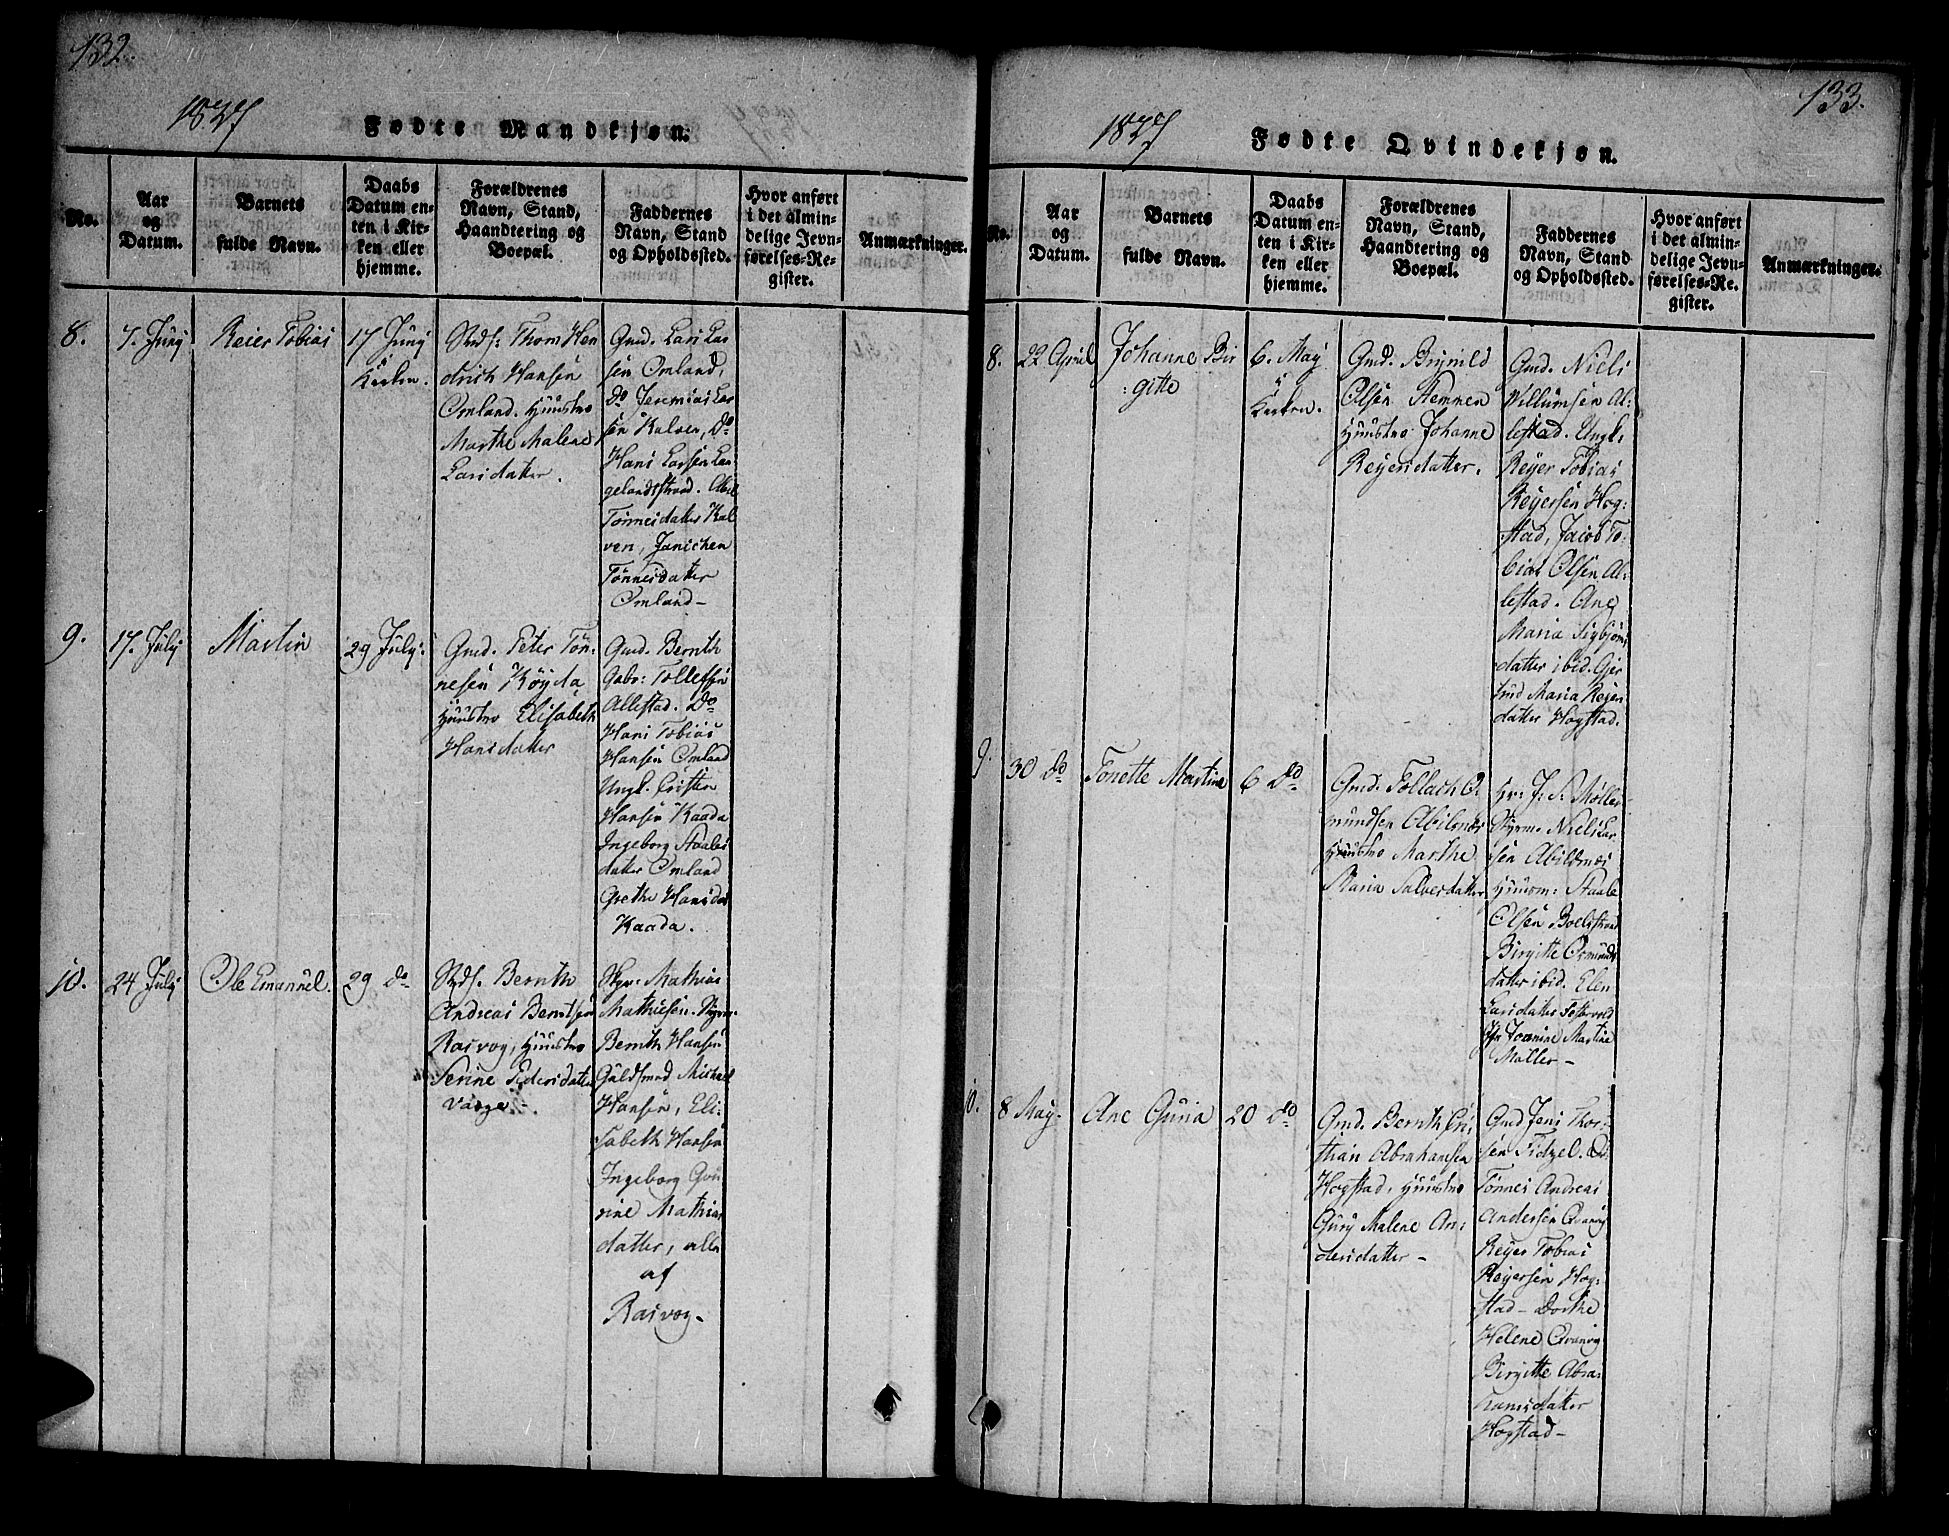 132.
1827
Fødte Mandkjøn.
No.
Aar
og
Datum.
Barnets
fulde Navn.
Daabs
Datum en-
ten i Kir-
ken eller
hjemme.
Forældrenes
Navn, Stand,
Haandtering og
Boepæl.
Faddernes
Navn, Stand
og Opholdssted.
Hvor anført
i det almin-
delige Jevn-
førelses-Re-
gister.
Anmærkninger.
8.
7. Junj
Reier Tobias
17 Junj
Kirken.
Thom Hen
drich Hansen
Omland. Hustro
Marthe Malene
Larsdatter.
Gmd. Lars Lar
sen Omland,
Do Jeremias Lar
sen Kalven, Do
Hans Larsen Lan-
gelandsstrand. Abel
Tønnesdatter Kal
ven, Janichen
Tønnesdatter
Omland-
9.
17. Julj
Martin
29 Julj
Gmd. Peter Tøn-
nesen Køyda
Hustro Elisabeth
Hansdatter
Gmd. Bernth
Gabr: Tollefsen
Allestad. Do
Hans Tobias
Hansen Omland
Ungk. Cristen
Hansen Kaada
Ingeborg Staales
datter Omland
Grethe Hansdr
Kaada.
10.
24 Julj
Ole Emanuel.
29 do
Bernth
Andreas Berntsen
Rasvog, Hustro
Serine Pedersdatter
Vaage-
Mathias
Mathiesen.
Bernth Hansen
Guldsmed Michael
Hansen, Eli-
sabeth Hansen
Ingeborg Gu
rine Mathias
datter, alle
af
Rasvog-
133.
1827
Fødte Qvindekjøn.
No.
Aar
og
Datum.
Barnets
fulde Navn.
Daabs
Datum en-
ten i Kir-
ken eller
hjemme.
Forældrenes
Navn, Stand,
Haandtering og
Boepæl.
Faddernes
Navn, Stand
og Opholdssted.
Hvor anført
i det almin-
delige Jevn-
førelses-Re-
gister.
Anmærkninger.
8.
22 April
Johanne Bir
:gitte
6. May
i
Kirken.
Gmd. Brynild
Olsen Stemnen
Hustro Johanne
Reyersdatter.
Gmd. Niels
Willumsen Al-
lestad. Ungk:
Reyer Tobias
Reyersen Hog:
stad, Jacob To-
bias Olsen Al-
lestad. Ane
Maria Sigbjørns
datter ibid. Gjer
trud Maria Reyers
datter Hogstad.
9.
30 do
Tonette Martine
6 do
Gmd. Tollach O:
mundsen Abilsnes
Hustro Marthe
Maria Salvesdatter
Hr: J: S: Møller
Styrm. Niels Lar
sen Abildsnes
Huusm: Staale
Olsen Boelsstrand
Birgitte Osmunds
datter ibid. Elen
Larsdatter
Joenine Martine
Møller-
10.
8 May.
Ane Guria
20 do
Gmd. Bernth Cri
stian Abrahamsen
Hogstad, Hustro
Gurj Malene An-
dersdatter-
Gmd Jens Thor-
sen Fidzel. Do
Tønnes Andreas
Andersen Qvanvig
Reyer Tobias
Reyersen Hog:
stad- Dorthe
Helene Qvanvig
Birgitte Abra-
hamsdatter
Hogstad-